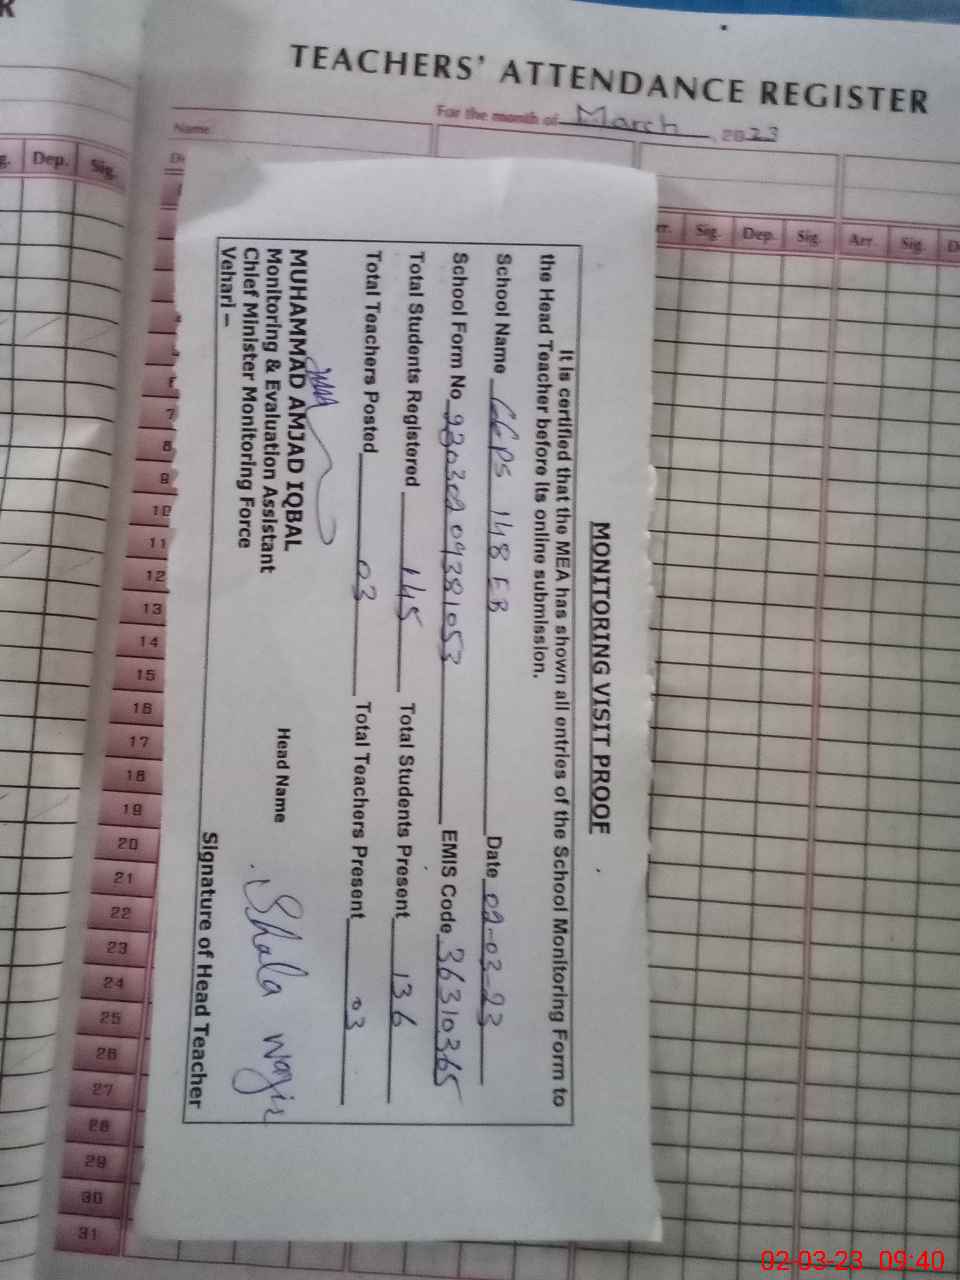 TEACHERS' ATTENDANCE REGISTER
For the month of March, 2023
Name
Dep. Sig.
Sig. Dep. Sig. Arr. Sig.
MONITORING VISIT PROOF
It is certified that the MEA has shown all entries of the School Monitoring Form to
the Head Teacher before its online submission.
School Name GGPS 148 EB Date 02-03-23
School Form No 23030209381053 EMIS Code 36310365
Total Students Registered 145 Total Students Present 136
Total Teachers Posted 03 Total Teachers Present 03
MUHAMMAD AMJAD IQBAL
Monitoring & Evaluation Assistant Head Name Shala Wazir
Chief Minister Monitoring Force
Vehari – Signature of Head Teacher
7
8
9
10
11
12
13
14
15
16
17
18
19
20
21
22
23
24
25
26
27
28
29
30
31
02-03-23 09:40